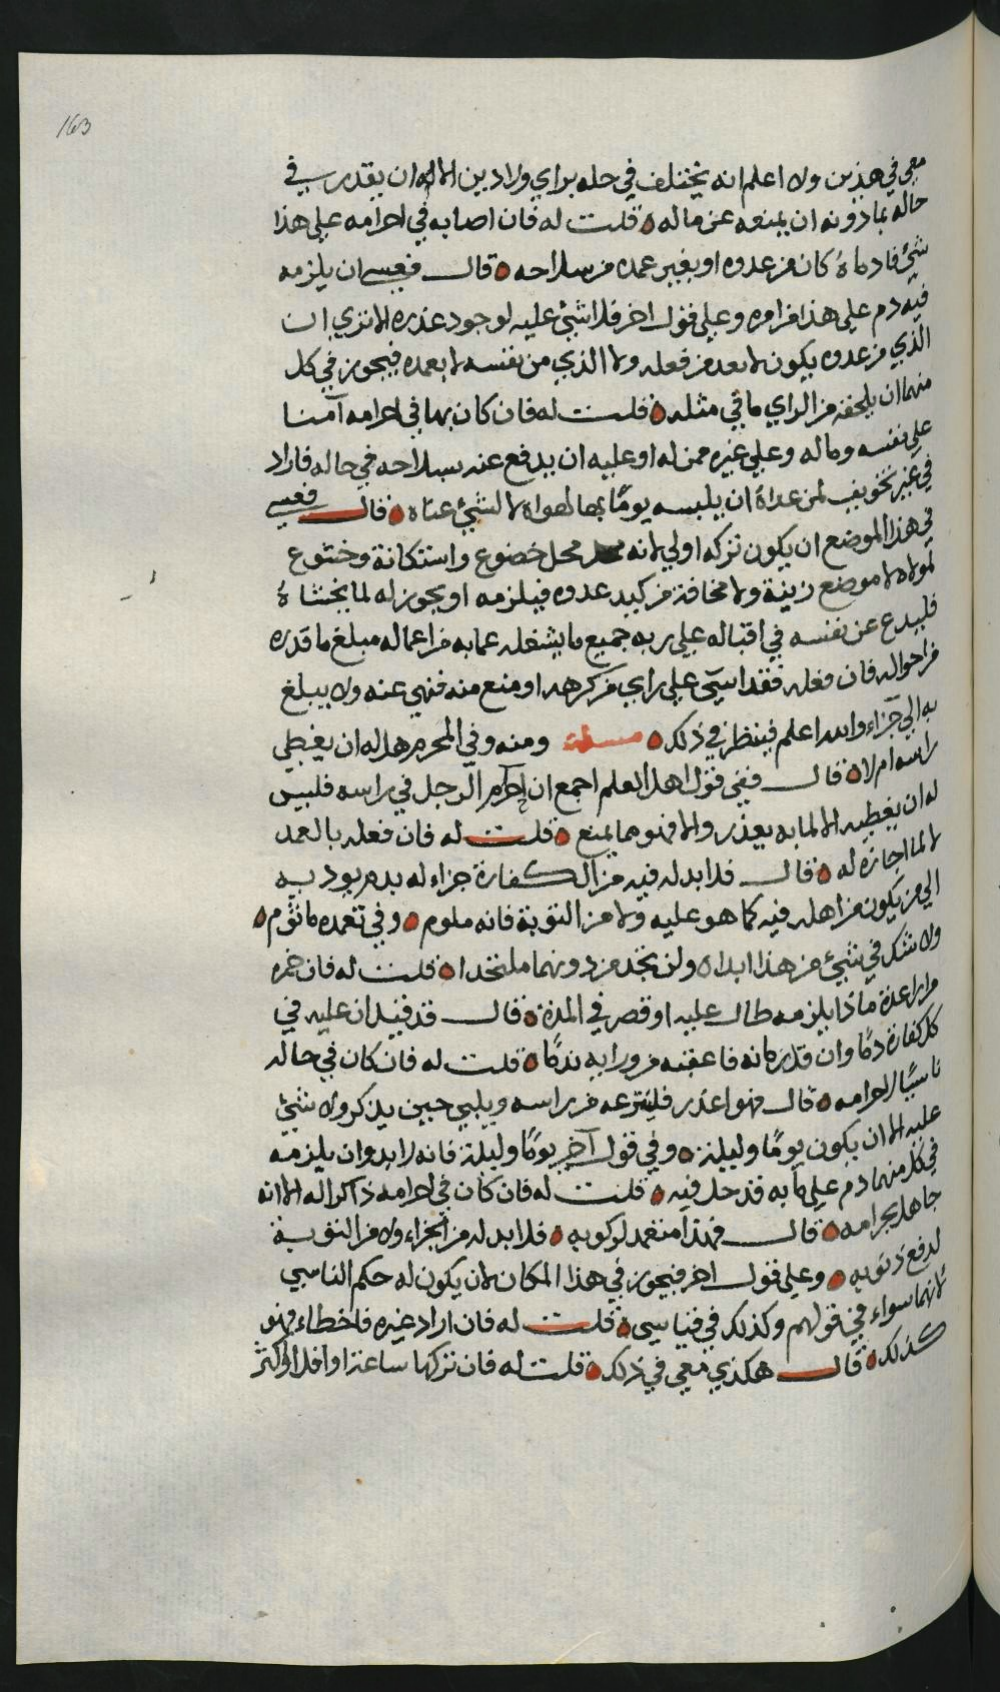 163
معي في هذين ولا اعلم انه يختلف في حله براي ولا دين الا انه ان يقدر في
حاله بما دونه ان يمنعه عن ماله ۵ قلت له فان اصابه في احرامه على هذا
شئ فادماهُ كان من عدوه او بغير عمده من سلاحه ۵ قال فعسى ان يلزمه
فيه دم على هذا من امره وعلى قول اخر فلا شئ عليه لوجود عذره الا ترى ان
الذي من عدوه يكون لا بعد من فعله ولا الذي من نفسه لا بعمده فيجوز في كل
منهما ان يلحقه من الراي ما في مثله ۵ قلت له فان كان بها في احرامه آمنا
على نفسه وماله وعلى غيره ممن له او عليه ان يدفع عنه بسلاحه في حاله فاراد
في غير تخويف لمن عداهُ ان يلبسه يومًا بها لهواه لا لشئ عناه ۵ قال فعسى
في هذا الموضع ان يكون تركه اولى لانه محل خضوع واستكانة وخشوع
لمولاه لا موضع زينة ولا مخافة من كيد عدوه فيلزمه او يجوز له لما يخشاهُ
فليدع عن نفسه في اقباله على ربه جميع ما يشغله عما به من اعماله مبلغ ما قدره
من احواله فان فعله فقد اسٓى على راي من كرهه او منع منه فنهى عنه ولا يبلغ
به الى جزاء والله اعلم فينظر في ذلك ۵ مسئلة ومنه وفي المحرم هل له ان يغطي
راسه ام لا ۵ قال ففي قول اهل العلم اجمع ان احرام الرجل في راسه فليس
له ان يغطيه الا لما به يعذر والا فهو مما يمنع ۵ قلت له فان فعله بالعمد
لا لما اجازه له ۵ قال فلا بد له فيه من الكفارة جزاء له بدم يود به
الى من يكون من اهله فيه كما هو عليه ولا من التوبة فانه ملوم ۵ وفي تعمده ماثوم ۵
ولا شك في شئ من هذا ابداه ولن تجد من دونهما ملتحدا ۵ قلت له فان خمره
مرارا عدة ماذا يلزمه طال عليه او قصر في المدة ۵ قال قد قيل ان عليه في
كل كفارة دمًا وان قل زمانه فاعقبه من ورايه ندمًا ۵ قلت له فان كان في حاله
ناسيًا لاحرامه ۵ قال فهو اعذر فلينزعه من راسه ويلبي حين يذكر ولا شئ
عليه الا ان يكون يومًا وليلة ۵ وفي قول آخر يومًا وليلة فانه لا بد وان يلزمه
في كل منهما دم على ما به قد حل فيه ۵ قلت له فان كان في احرامه ذاكرا له الا انه
جاهل بحرامه ۵ قال فهذا متعمد لركوبه ۵ فلا بد له من الجزاء ولا من التوبة
لدفع ذنوبه ۵ وعلى قول اخر فيجوز في هذا المكان لان يكون له حكم الناسي
لانهما سواء في قولهم وكذلك في قياسي ۵ قلت له فان اراد غيره فاخطاء فهو
كذلك ۵ قال هكذي معي في ذلك ۵ قلت له فان تركها ساعة او اقل او اكثر